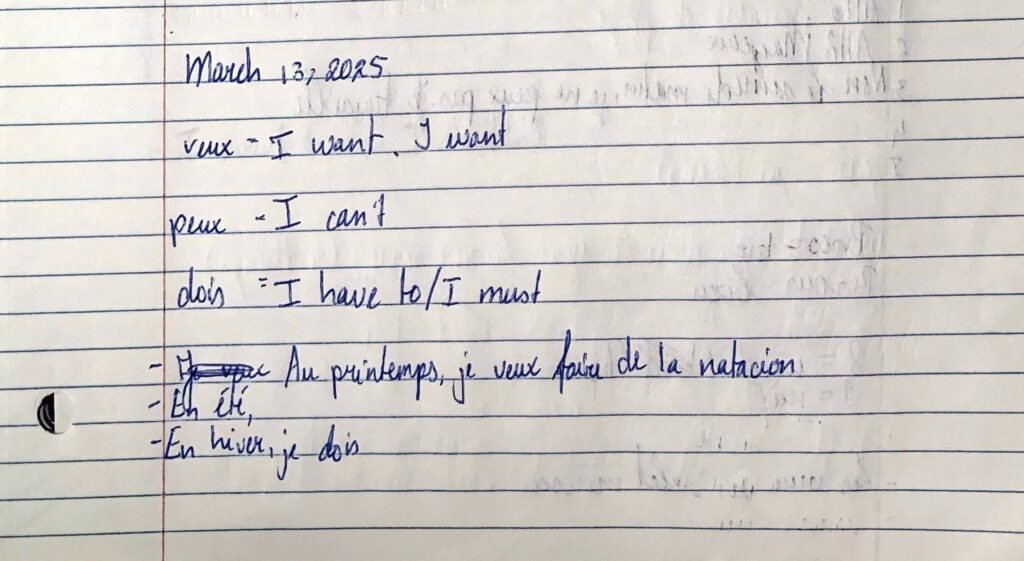 March 13, 2025
veux = I want. I want
peux = I can't
dois = I have to/I must
- Au printemps, je veux faire de la natacion
- En été,
- En hiver, je dois